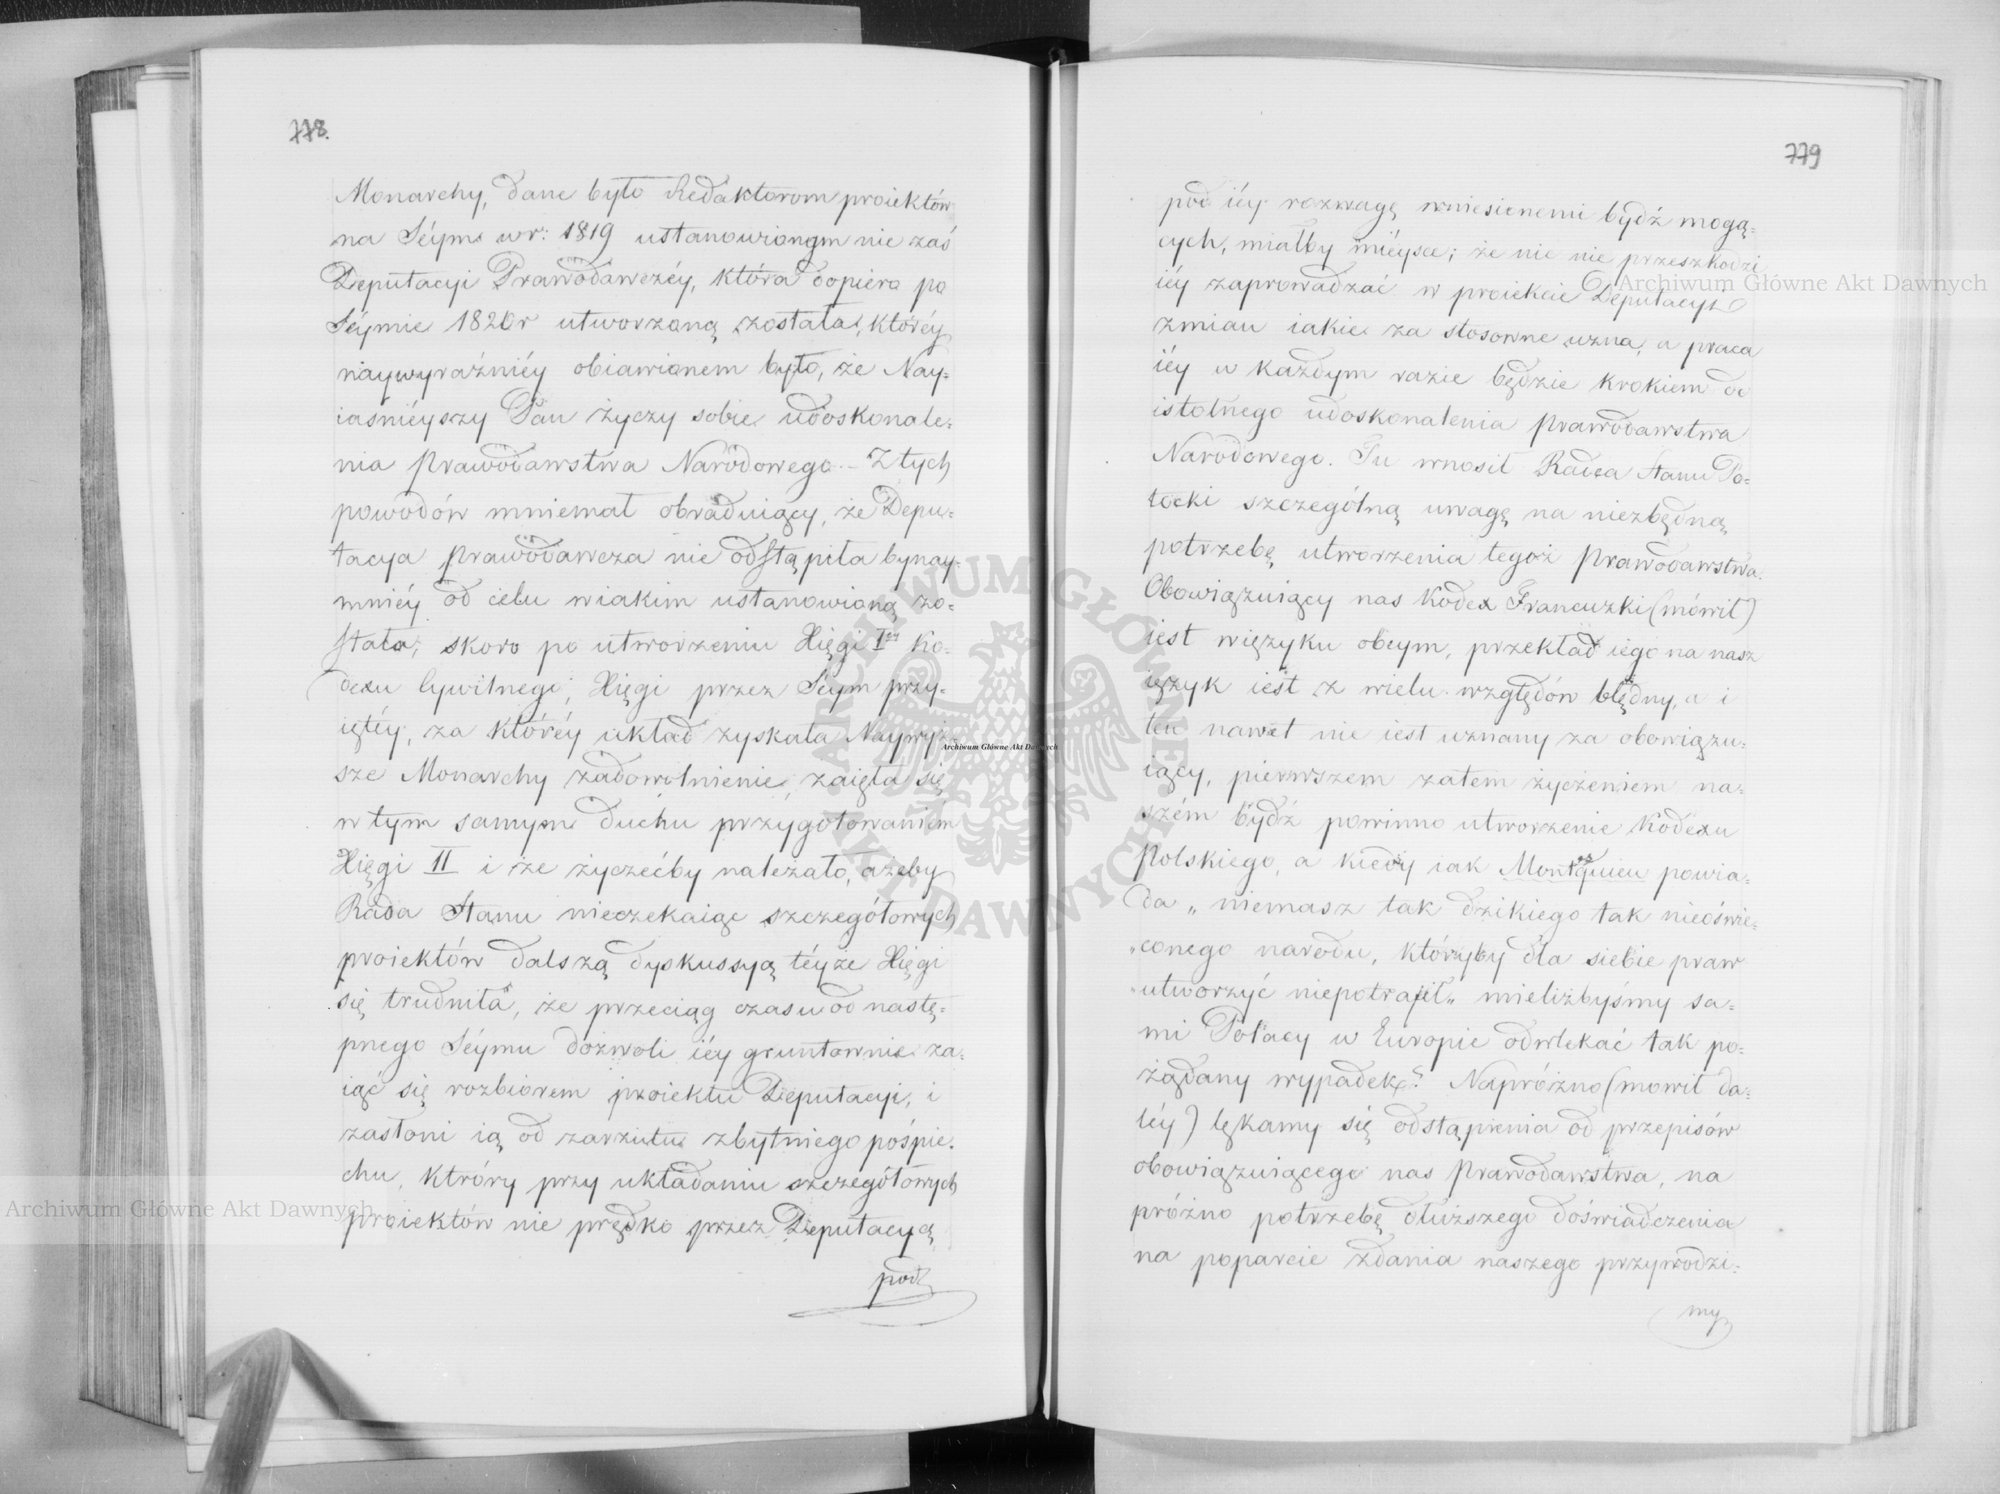 778.
Monarchy, dane było Redaktorom proiektów
na Séym w r: 1819 ustanowionym nie zaś
Deputacyi Prawodawczéy, która dopiero po
Séymie 1820r utworzoną została, któréy
naywyraźniéy obiawionem było, że Nay-
iaśniéyszy Pan życzy sobie udoskonale-
nia Prawodawstwa Narodowego. – Z tych
powodów mniemał obraduiący, że Depu-
tacya Prawodawcza nie odstąpiła bynay-
mniéy od celu w iakim ustanowioną zo-
stała; skoro po utworzeniu Xięgi Iéy Ko-
dexu Cywilnego, Xięgi przez Séym przy-
iętéy, za któréy układ zyskała Naywyż-
sze Monarchy zadowolnienie, zaięła się
w tym samym duchu przygotowaniem
Xięgi II i że życzećby należało, ażeby
Rada Stanu nieczekaiąc szczegółowych
proiektów dalszą dyskussyą téyże Xięgi
się trudniła, że przeciąg czasu od nastę-
pnego Séymu dozwoli iéy gruntownie za-
iąć się rozbiorem proiektu Deputacyi, i
zasłoni ią od zarzutu zbytniego pośpie-
chu, który przy układaniu szczegółowych
proiektów nie prędko przez Deputacyą
pod
779
pod iéy rozwagę wniesionemi bydź mogą-
cych, miałby miéysce; że nic nie przeszkodzi
iéy zaprowadzać w proiekcie Deputacyi
zmian iakie za stosowne uzna, a praca
iéy w każdym razie będzie krokiem do
istotnego udoskonalenia Prawodawstwa
Narodowego. Tu wnosił Radca Stanu Po-
tocki szczególną uwagę na niezbędną
potrzebę utworzenia tegoż Prawodawstwa.
Obowiązuiący nas Kodex Francuzki (mówił)
iest w ięzyku obcym, przekład iego na nasz
ięzyk iest z wielu względów błędny, a i
ten nawet nie iest uznany za obowiązu-
iący, pierwszem zatem życzeniem na-
szém bydź powinno utworzenie Kodexu
Polskiego, a kiedy iak Montesquieu powia-
da „ niemasz tak dzikiego tak nieoświe-
„conego narodu, któryby dla siebie praw
„utworzyć niepotrafił„ mieliżbyśmy sa-
mi Polacy w Europie odwlekać tak po-
żądany wypadek? Napróżno (mowił da-
léy) lękamy się odstąpienia od przepisów
obowiązuiącego nas Prawodawstwa, na
próżno potrzebę dłuższego doświadczenia
na poparcie zdania naszego przywodzi-
my
Archiwum Główne Akt Dawnych
Archiwum Główne Akt Dawnych
Archiwum Główne Akt Dawnych
ARCHIWUM GŁÓWNE
AKT DAWNYCH